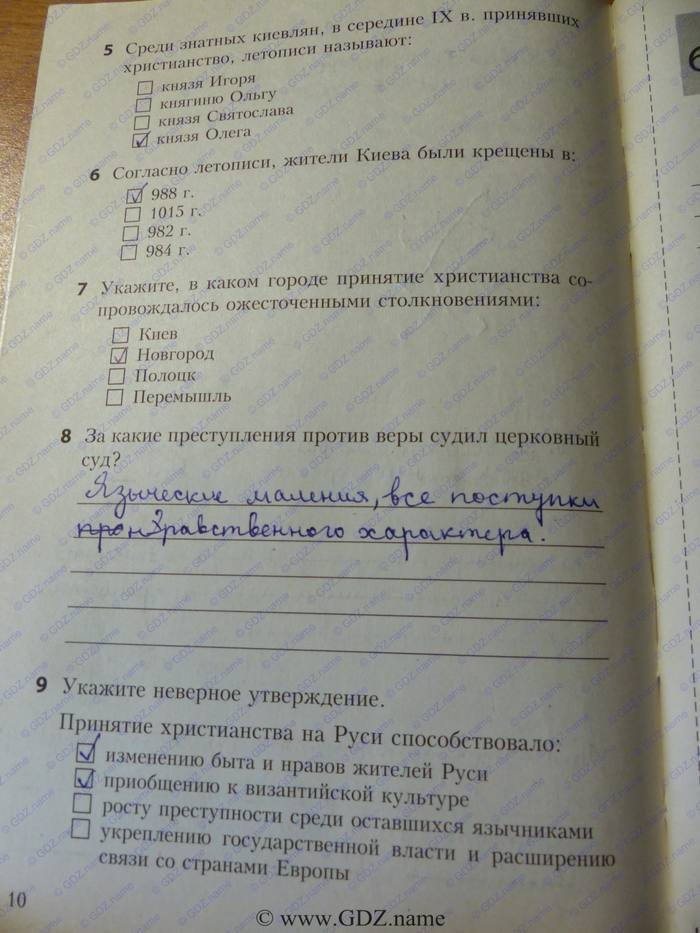 5 Среди знатных киевлян, в середине IX в. принявших
христианство, летописи называют:
князя Игоря
княгиню Ольгу
князя Святослава
князя Олега
6 Согласно летописи, жители Киева были крещены в:
988 г.
1015 г.
982 г.
984 г.
7 Укажите, в каком городе принятие христианства со-
провождалось ожесточенными столкновениями:
Киев
Новгород
Полоцк
Перемышль
8 За какие преступления против веры судил церковный
суд?
Языческие маления, все поступки
нравственного характера.
9 Укажите неверное утверждение.
Принятие христианства на Руси способствовало:
изменению быта и нравов жителей Руси
приобщению к византийской культуре
росту преступности среди оставшихся язычниками
укреплению государственной власти и расширению
связи со странами Европы
10
© www.GDZ.name